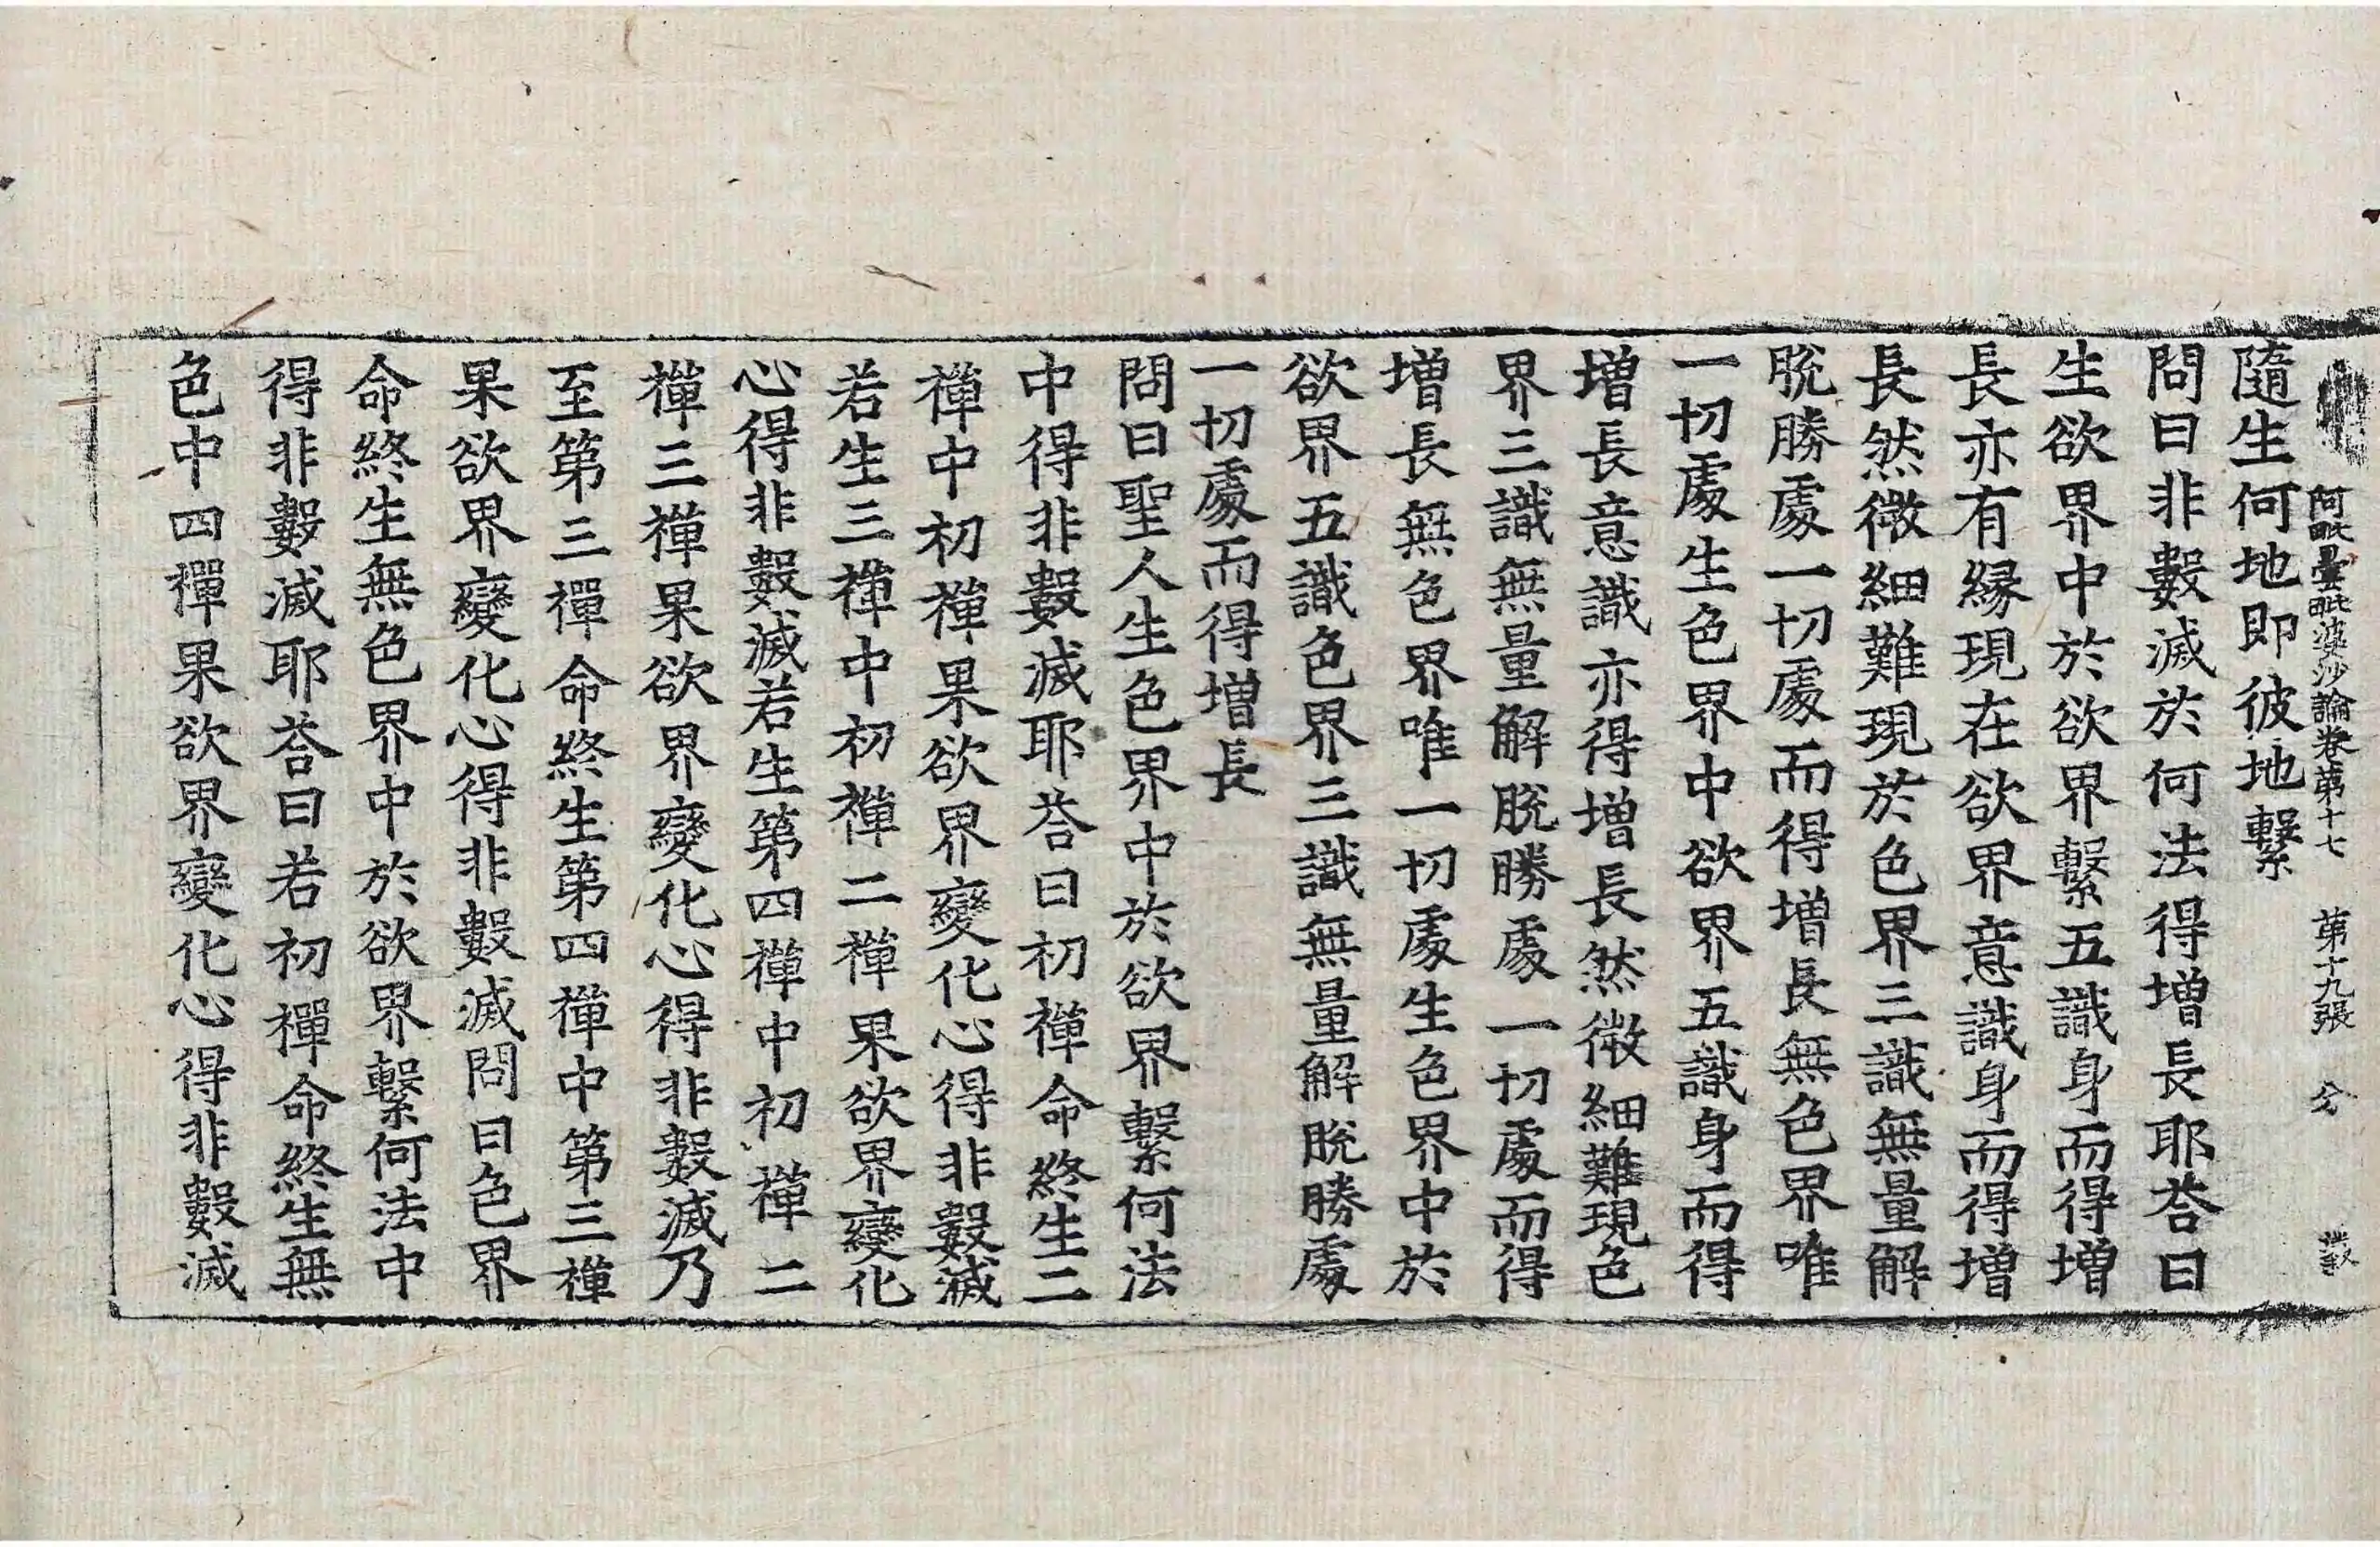 阿毗曇毗婆沙論卷第十七 第十九張 分
隨生何地即彼地繫
問曰非數滅於何法得增長耶荅曰
生欲界中於欲界繫五識身而得增
長亦有緣現在欲界意識身而得增
長然微細難現於色界三識無量解
脫勝處一切處而得增長無色界唯
一切處生色界中欲界五識身而得
增長意識亦得增長然微細難現色
界三識無量解脫勝處一切處而得
增長無色界唯一切處生色界中於
欲界五識色界三識無量解脫勝處
一切處而得增長
問曰聖人生色界中於欲界繫何法
中得非數滅耶荅曰初禪命終生二
禪中初禪果欲界變化心得非數滅
若生三禪中初禪二禪果欲界變化
心得非數滅若生第四禪中初禪二
禪三禪果欲界變化心得非數滅乃
至第三禪命終生第四禪中第三禪
果欲界變化心得非數滅問曰色界
命終生無色界中於欲界繫何法中
得非數滅耶荅曰若初禪命終生無
色中四禪果欲界變化心得非數滅